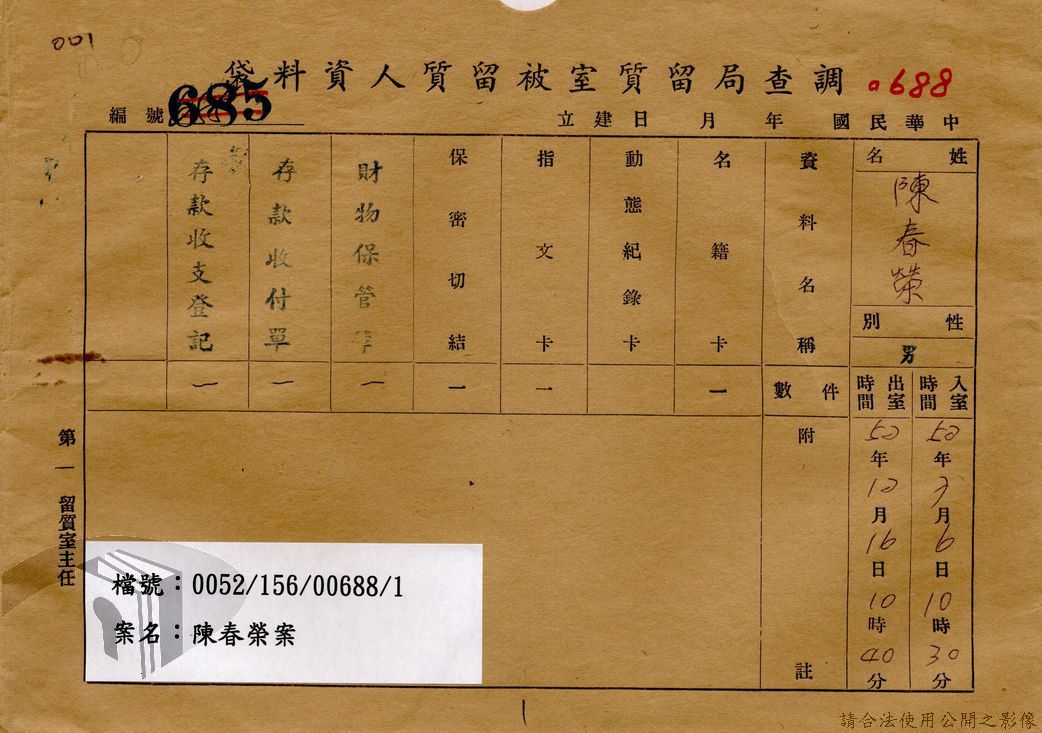 001
調查局留質室被留質人資料袋
a688
編號
685
中華民國 年 月 日建立
姓名
陳春榮
性別
男
入室時間
年
月
6日
10時
30分
出室時間
年
月
16日
10時
40分
資料名稱
件數
附註
名籍卡
一
動態紀錄卡
指文卡
一
保密切結
一
財物保管單
一
存款收付單
一
存款收支登記
一
第一留質室主任
檔號：0052/156/00688/1
案名：陳春榮案
請合法使用公開之影像